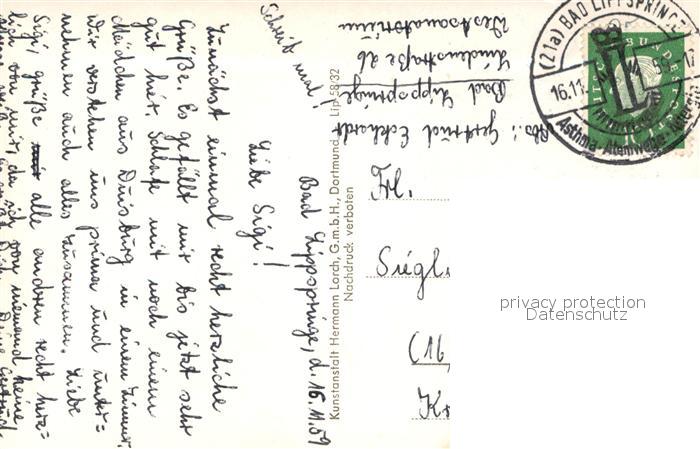 Bad Lippspringe, d. 16.11.59
Liebe Sigi!
Zunächst einmal recht herzliche
Grüße. Es gefällt mir bis jetzt sehr
gut hier. Schlafe mit noch einem
Mädchen aus Duisburg in einem Zimmer.
Wir verstehen uns prima und unter=
nehmen auch alles zusammen. Liebe
Sigi, grüße alle andren recht herz=
lich von mir, da ich von niemand keine
Deine Gertrud.
Schreib mal!
Abs.: Gertrud Eckhardt
Bad Lippspringe
Lindenstraße 26
Westsanatorium
Kunstanstalt Hermann Lorch, G.m.b.H., Dortmund Lip 58/32
Nachdruck verboten
Frl.
Siegl
(16
Kr
(21a) BAD LIPPSPRINGE
16.11.
59-1
Asthma-Atemwege-
DEUTSCHE BUNDESPOST
privacy protection
Datenschutz